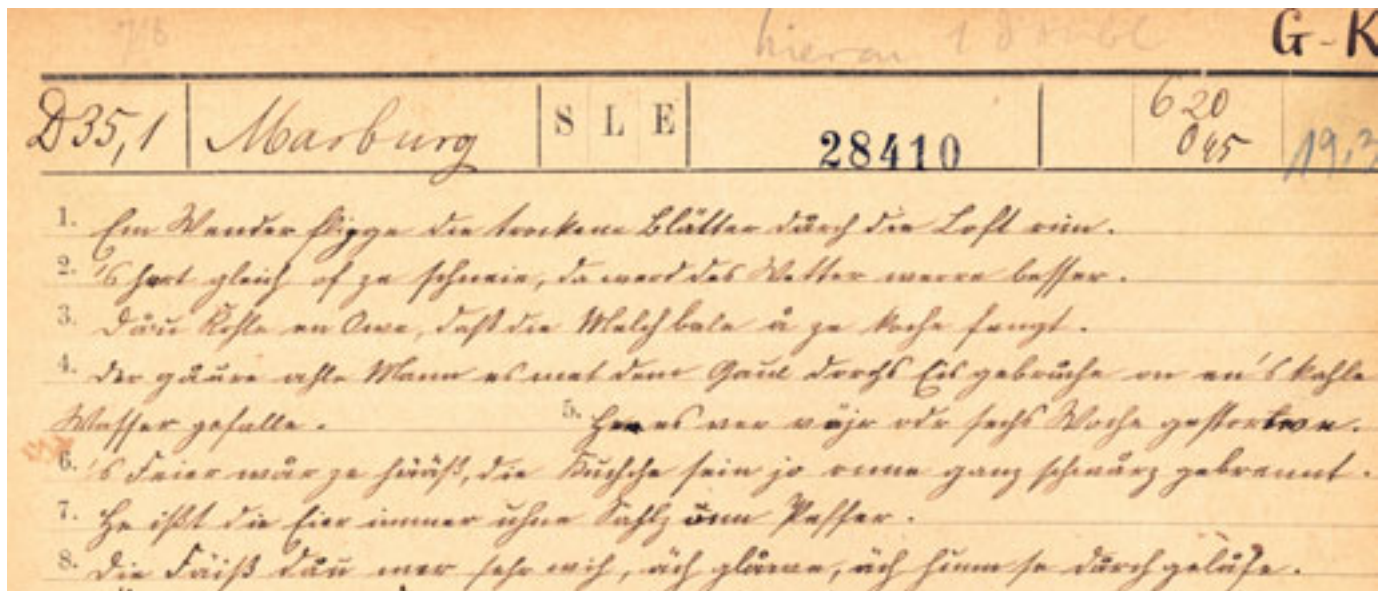 hieran 1 G-K
D35,1 Marburg S L E 28410 620 045 19,3
1. Em Wender fligge die trockene Blätter dûrch die Loft rim.
2. 's hert gleich of ze schneie, da werd des Wetter werre besser.
3. Dåu Kohle en Owe, daß die Melch bale å ze koche fengt.
4. Der gåure ahle Mann es met dem Gaul dorchs Eis gebruche on en's kahle
Wasser gefalle. 5. He es ver väjr odr sechs Woche gestorwe.
6. 's Feier wår ze hääß, die Kuchche sein jo onne ganz schwårz gebrannt.
7. He ißt die Eier immer uhne Sahlz onn Peffer.
8. Die Fäiß dåu mer sehr wih, äch glåwe, äch hunn se dûrch gelåfe.